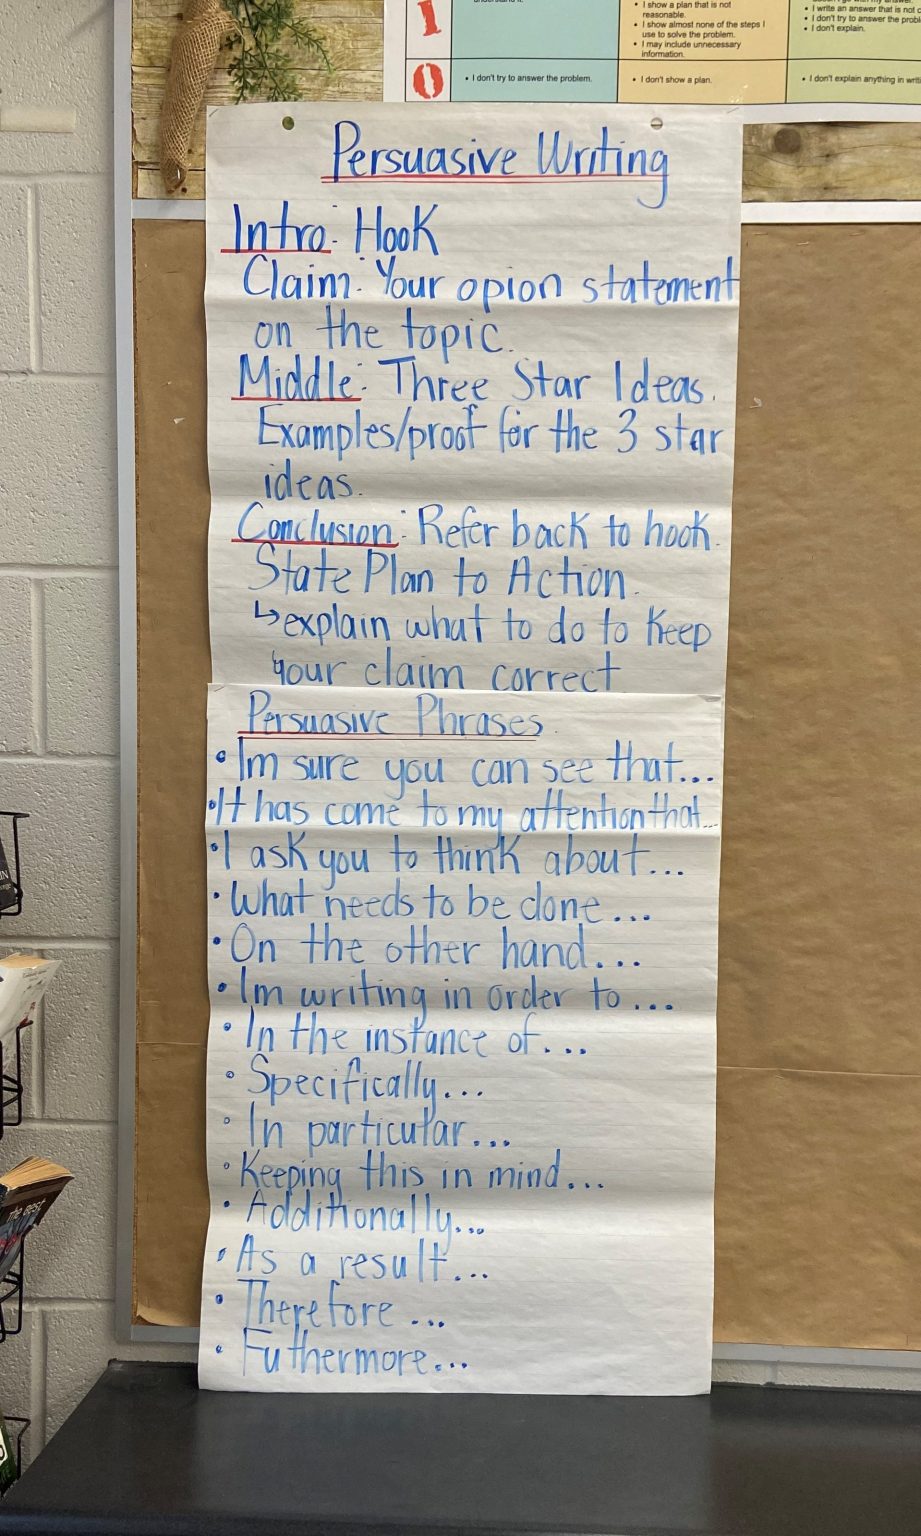 understand it.
1
• I show a plan that is not
reasonable.
• I show almost none of the steps I
use to solve the problem.
• I may include unnecessary
information.
• I write an answer that is not c
• I don't try to answer the probl
• I don't explain.
0
• I don't try to answer the problem.
• I don't show a plan.
• I don't explain anything in writi
Persuasive Writing
Intro: Hook
Claim: Your opion statement
on the topic.
Middle: Three Star Ideas.
Examples/proof for the 3 star
ideas.
Conclusion: Refer back to hook.
State Plan to Action.
↳explain what to do to keep
your claim correct
Persuasive Phrases
• Im sure you can see that...
• It has come to my attention that...
• I ask you to think about...
• What needs to be done...
• On the other hand...
• Im writing in order to...
• In the instance of...
• Specifically...
• In particular...
• Keeping this in mind...
• Additionally...
• As a result...
• Therefore...
• Futhermore...
The Best